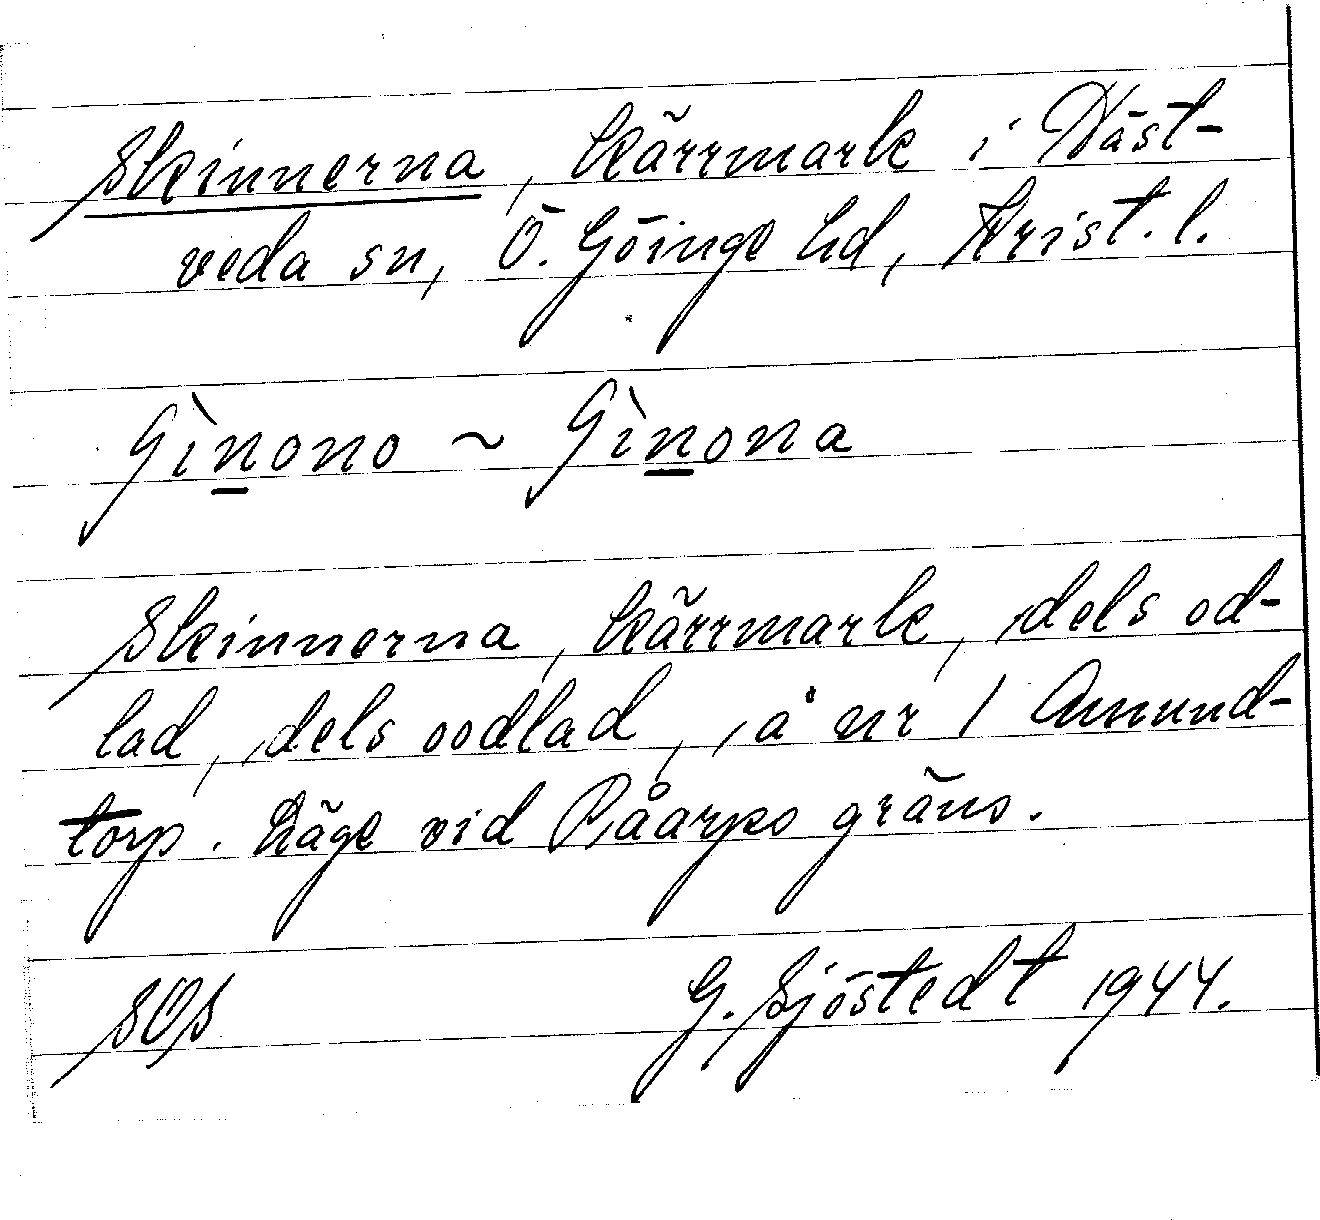 Skinnerna, kärrmark i Väst-
veda sn, Ö. Göinge hd, Krist. l.
Gìnono ~ Gìnona
Skinnerna, kärrmark, dels od-
lad, dels oodlad, å nr 1 Amund-
torp. Läge vid Råarps gräns.
SOS G. Sjöstedt 1944.